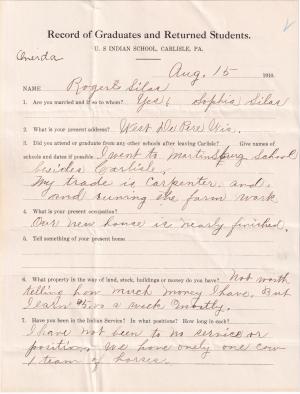 Record of Graduates and Returned Students.
U. S INDIAN SCHOOL, CARLISLE, PA.
Oneida
Aug. 15 1910.
NAME Roger Silas
1. Are you married and if so to whom? Yes; Sophia Silas
2. What is your present address? West De Pere Wis.
3. Did you attend or graduate from any other schools after leaving Carlisle? Give names of
schools and dates if possible. I went to martinsburg school
besides Carlisle.
My trade is Carpenter. and.
and running the farm work.
4. What is your present occupation?
Our new house is nearly finished.
5. Tell something of your present home.
6. What property in the way of land, stock, buildings or money do you have? Not worth
telling how much money I have. But
I earn $5 00 a week mostly.
7. Have you been in the Indian Service? In what positions? How long in each?
I have not been to no service or
position. We have only one cow
1 team of horses.